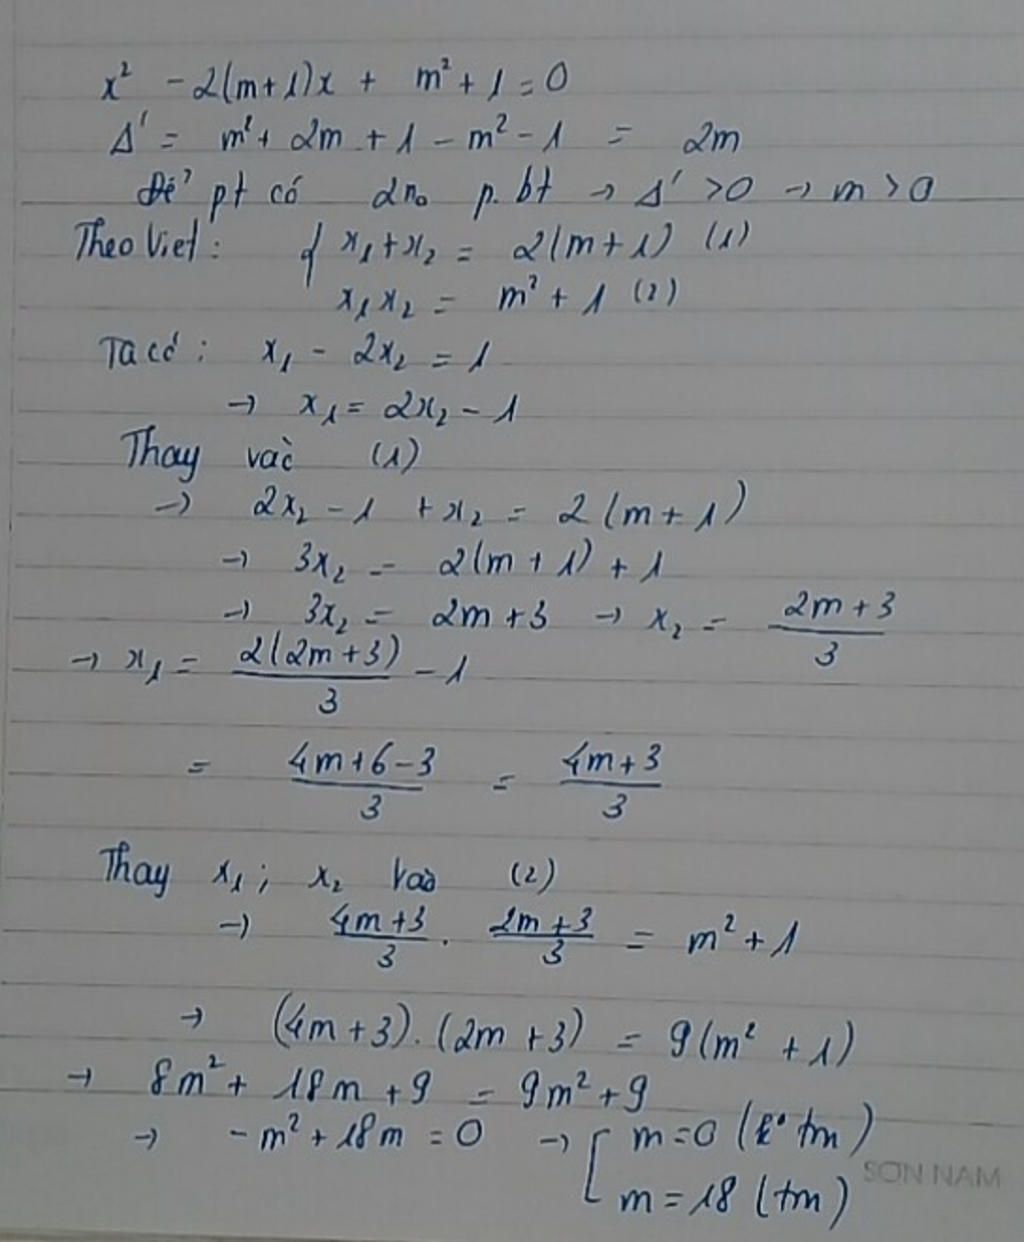 x² - 2(m+1)x + m² + 1 = 0
Δ' = m² + 2m + 1 - m² - 1 = 2m
Để pt có 2 no p.bt → Δ' > 0 → m > 0
Theo Viet: { x₁ + x₂ = 2(m+1) (1)
x₁x₂ = m² + 1 (2)
Ta có: x₁ - 2x₂ = 1
→ x₁ = 2x₂ - 1
Thay vào (1)
→ 2x₂ - 1 + x₂ = 2(m+1)
→ 3x₂ = 2(m+1) + 1
→ 3x₂ = 2m+3 → x₂ = (2m+3)/3
→ x₁ = 2(2m+3)/3 - 1
= (4m+6-3)/3 = (4m+3)/3
Thay x₁; x₂ vào (2)
→ (4m+3)/3 . (2m+3)/3 = m² + 1
→ (4m+3).(2m+3) = 9(m² + 1)
→ 8m² + 18m + 9 = 9m² + 9
→ -m² + 18m = 0 → [ m = 0 (k° tm)
m = 18 (tm)
SON NAM